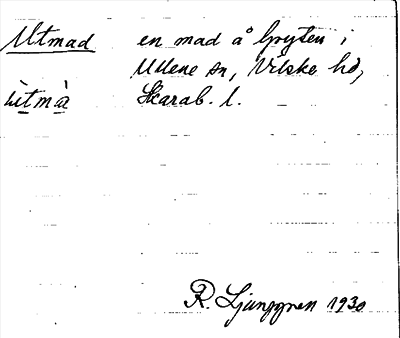 Utmad en mad å Gryten i
Ullene sn, Vilske hd,
ùtmàr Skarab. l.
R. Ljunggren 1930